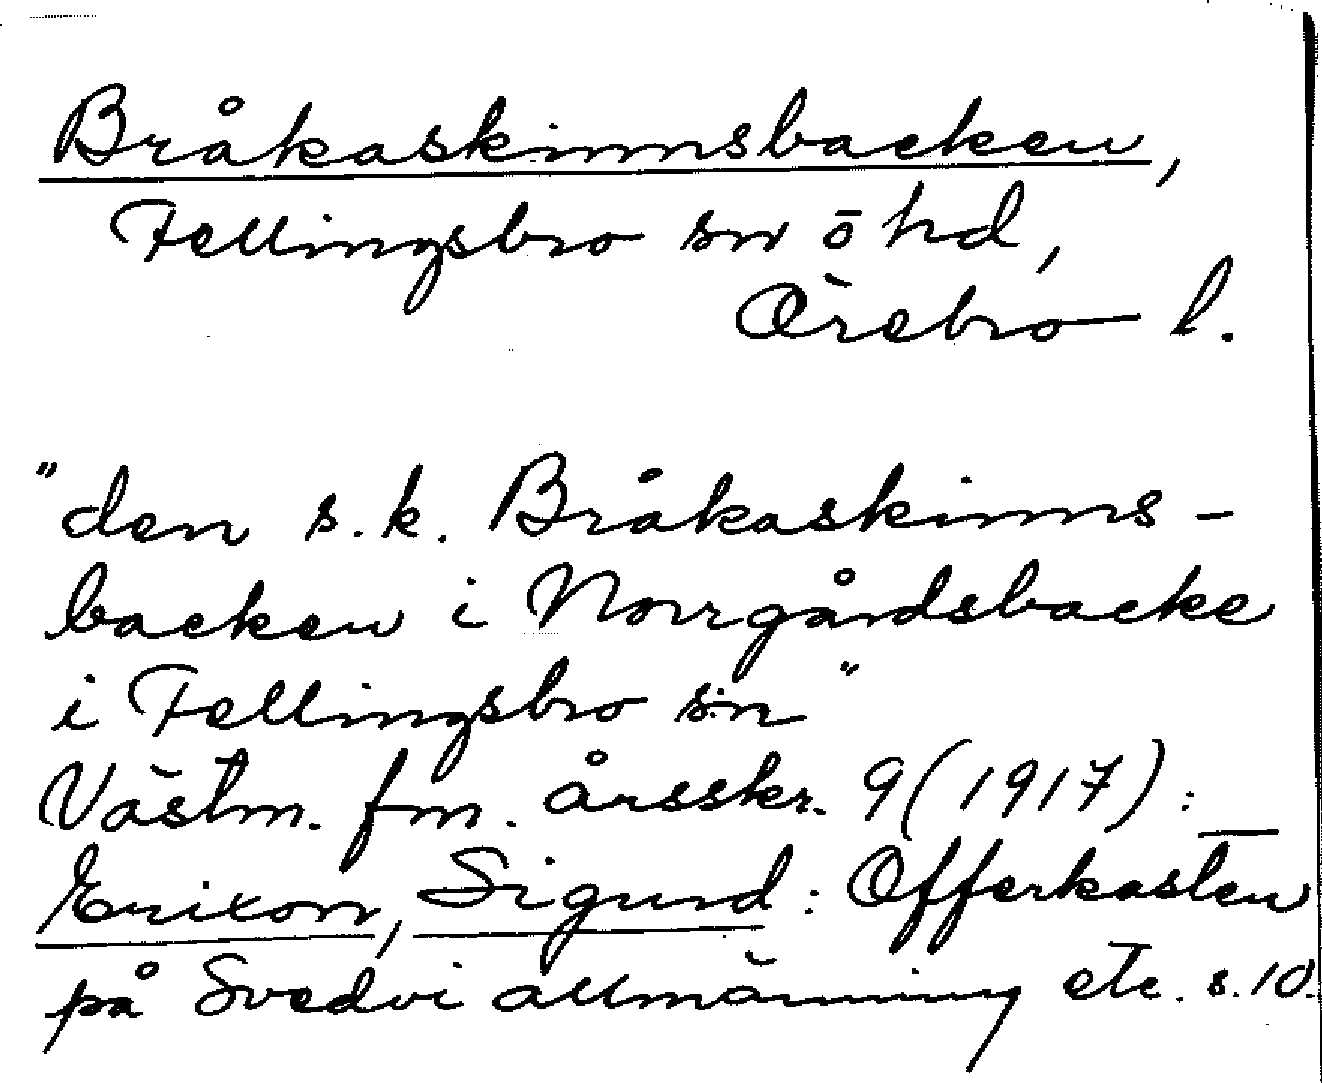 Bråkaskinnsbacken,
Fellingsbro sn ö hd,
Örebro l.
"den s.k. Bråkaskinns-
backen i Norrgårdsbacke
i Fellingsbro sn"
Västm. fm. årsskr. 9 (1917):_
Erixon, Sigurd: Offerkasten
på Svedvi allmänning etc. s. 10.